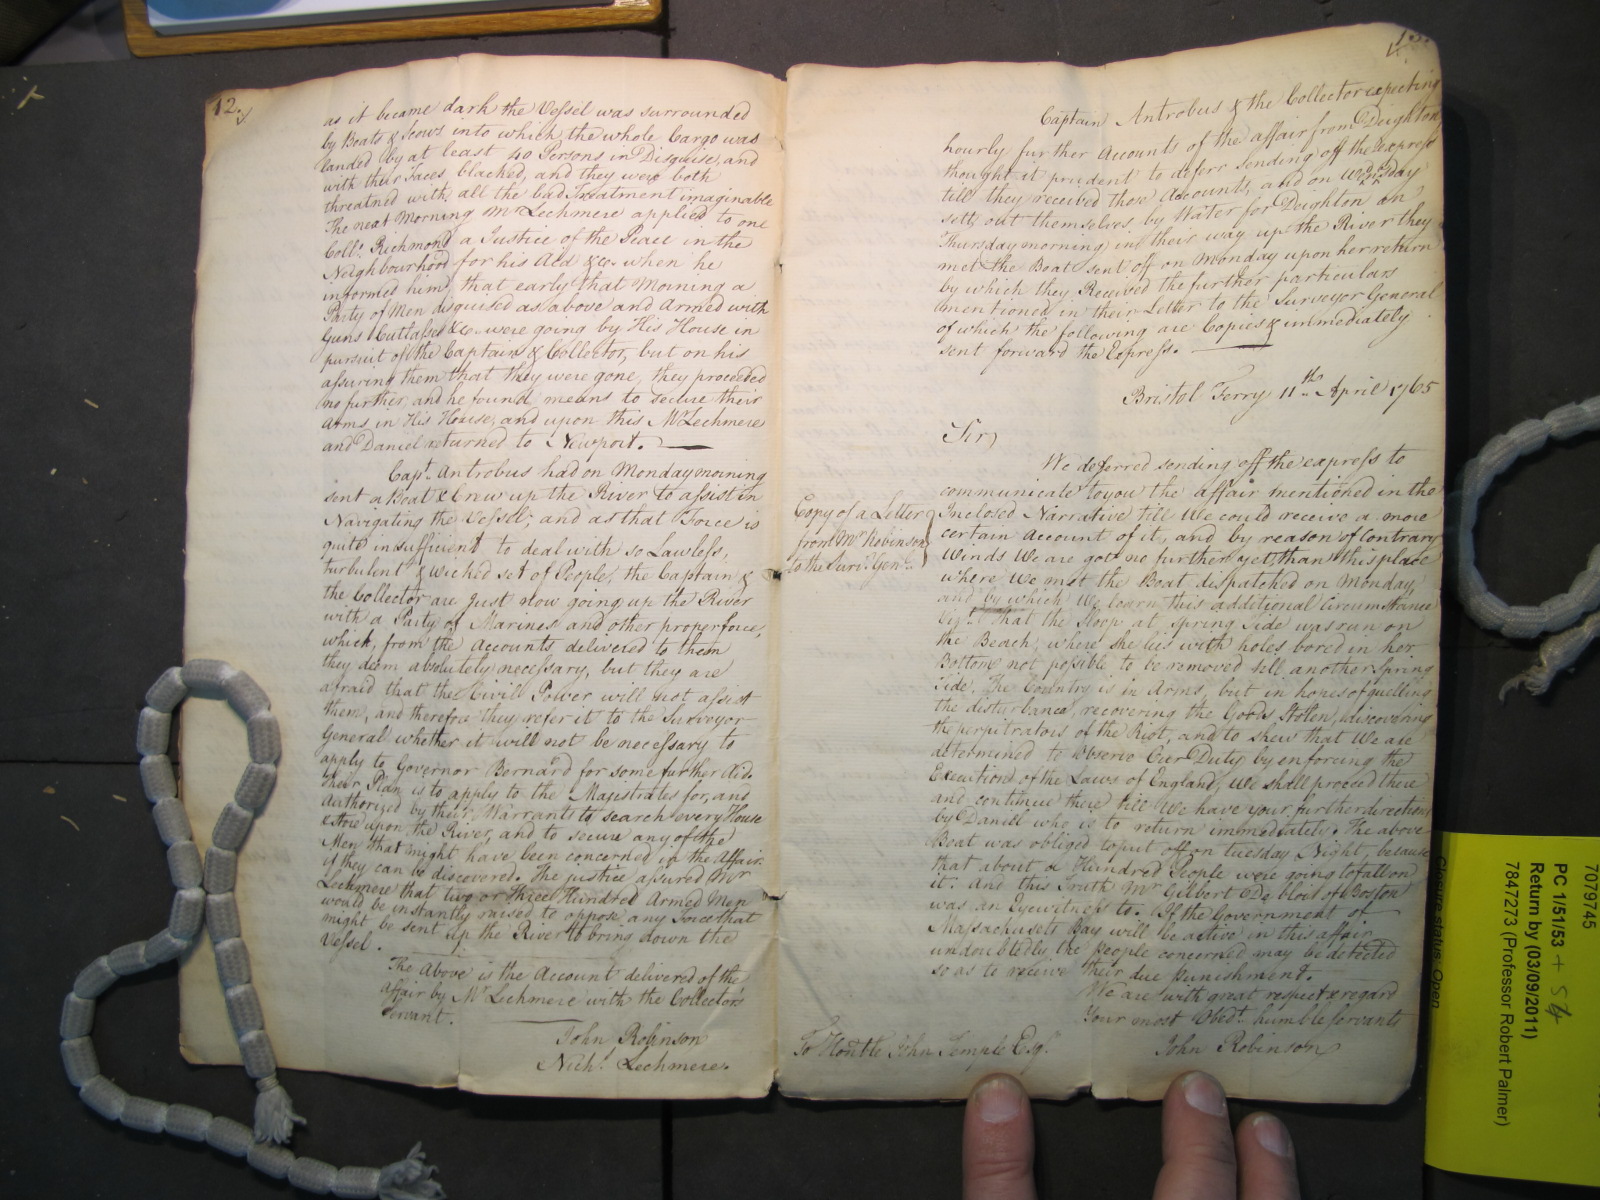 12.
as it became dark the Vessel was surrounded
by Boats & Scows into which the whole Cargo was
landed by at least 40 Persons in Disguise, and
with their Faces blacked, and they were both
threatned with all the bad Treatment imaginable
The next Morning Mr Lechmere applied to one
Coll:o Richmond a Justice of the Peace in the
Neighbourhood for his Aid &c. when he
informed him, that early that Morning a
Party of Men disguised as above and Armed with
Guns Cutlasses &c. were going by His House in
pursuit of the Captain & Collector, but on his
assuring them that they were gone, they proceeded
no further, and he found means to secure their
Arms in His House, and upon this Mr Lechmere
and Daniel returned to Newport.
Capt. Antrobus had on Monday morning
sent a Boat & Crew up the River to assist in
Navigating the Vessel; and as that Force is
quite insufficient to deal with so Lawless,
turbulent & wicked set of People, the Captain &
the Collector are just now going up the River
with a Party of Marines and other proper force,
which, from the Accounts delivered to them
they deem absolutely necessary, but they are
afraid that the Civil Power will not assist
them, and therefore they refer it to the Surveyor
General whether it will not be necessary to
apply to Governor Bernard for some further Aid.
their Plan is to apply to the Magistrates for, and
Authorized by their Warrants to search every House
& Store upon the River, and to secure any of the
Men that might have been concerned in the Affair
if they can be discovered. The justice assured Mr
Lechmere that two or three Hundred Armed Men
would be instantly raised to oppose any Force that
might be sent up the River to bring down the
Vessel.
The Above is the Account delivered of the
Affair by Mr Lechmere with the Collector's
Servant.
John Robinson
Nich:s Lechmere.
13.
Captain Antrobus & the Collector expecting
hourly further Accounts of the affair from Deighton,
thought it prudent to deferr sending off the Express
till they received those Accounts, and on Wednesday
sett out themselves by Water for Deighton on
Thursday morning in their way up the River they
met the Boat sent off on Monday upon her return
by which they Received the further particulars
mentioned in their Letter to the Surveyor General
of which the following are Copies & immediately
sent forward the Express.
Bristol Ferry 11th April 1765
Sir,
We deferred sending off the express to
communicate to you the affair mentioned in the
Copy of a Letter
from Mr Robinson
to the Surv:r Gen:l
Inclosed Narrative till We could receive a more
certain Account of it, and by reason of Contrary
Winds We are got no further yet, than this place
where We met the Boat dispatched on Monday,
and by which We learn this additional Circumstance
Viz:t that the Sloop at Spring Tide was run on
the Beach, where she lies with holes bored in her
Bottom not possible to be removed till another Spring
Tide. The Country is in Arms, but in hopes of quelling
the disturbance, recovering the Goods Stolen, discovering
the perpitrators of the Riot, and to shew that We are
determined to Observe Our Duty by enforcing the
Execution of the Laws of England, We shall proceed there
and continue there till We have your further directions
by Daniel who is to return immediately. The above
Boat was obliged to put off on Tuesday Night, because
that about a Hundred People were going to fall on
it: And this Truth Mr Gilbert De blois of Boston
was an Eyewitness to. If the Government of
Massachusets Bay will be active in this affair
undoubtedly the people concerned may be detected
so as to receive their due punishment.
We are with great respect & regard
Your most Obedt humble Servants
John Robinson
To Honble John Temple Esqr.
7079745
PC 1/51/53 + 54
Return by (03/09/2011)
7847273 (Professor Robert Palmer)
Closure status: Open